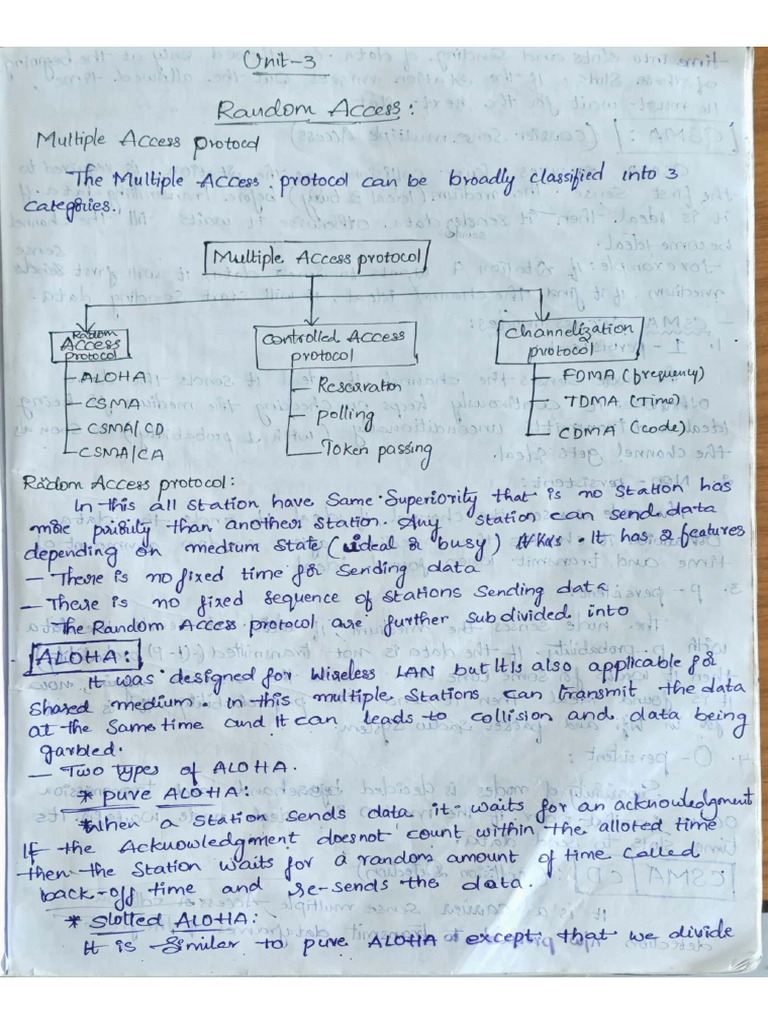 Unit-3
Random Access:
Multiple Access protocol
The Multiple Access protocol can be broadly classified into 3
categories.
Multiple Access protocol
Radom
Access
protocol
Controlled Access
protocol
Channelization
protocol
ALOHA
CSMA
CSMA/CD
CSMA/CA
Reservation
polling
Token passing
FDMA (frequency)
TDMA (Time)
CDMA (code)
Radom Access protocol:
In this all station have same superiority that is no station has
more priority than another station. Any station can send data
depending on medium state (ideal & busy). It has 2 features
— There is no fixed time for sending data
— There is no fixed sequence of stations sending data
The Random Access protocol are further subdivided into
ALOHA:
It was designed for wireless LAN but It is also applicable for
shared medium. In this multiple stations can transmit the data
at the same time and It can leads to collision and data being
garbled.
— Two types of ALOHA.
* pure ALOHA:
When a station sends data it waits for an acknowledgment
If the Acknowledgment doesnot count within the alloted time
then the station waits for a random amount of time called
back-off time and re-sends the data.
* Slotted ALOHA:
It is similar to pure ALOHA except that we divide